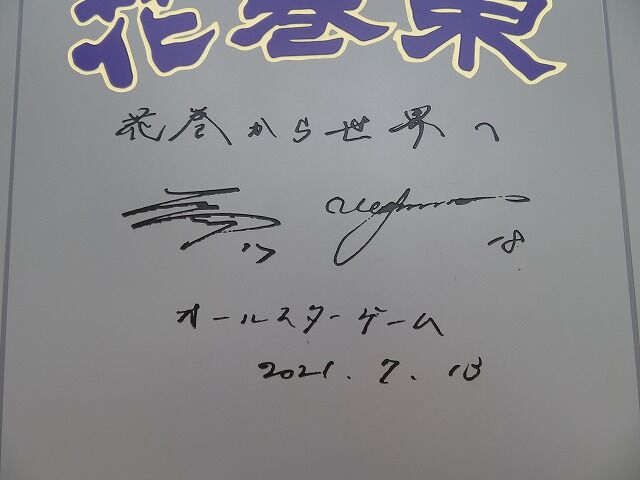 花巻東
花巻から世界へ
17 18
オールスターゲーム
2021.7.13